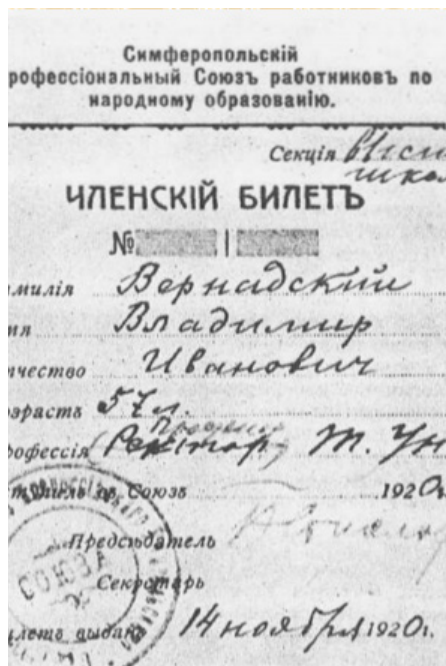 Симферопольскій
рофессіональный Союзъ работниковъ по
народному образованію.
Секція Высш
школ
ЧЛЕНСКІЙ БИЛЕТЪ
№
амилія Вернадский
мя Владимир
чество Иванович
озрастъ 57 л.
рофессія (Ректор) Т. Ун
въ Союзъ 1920
Предсѣдатель
СОЮЗА
Секретарь
илетъ выданъ 14 ноября 1920 г.